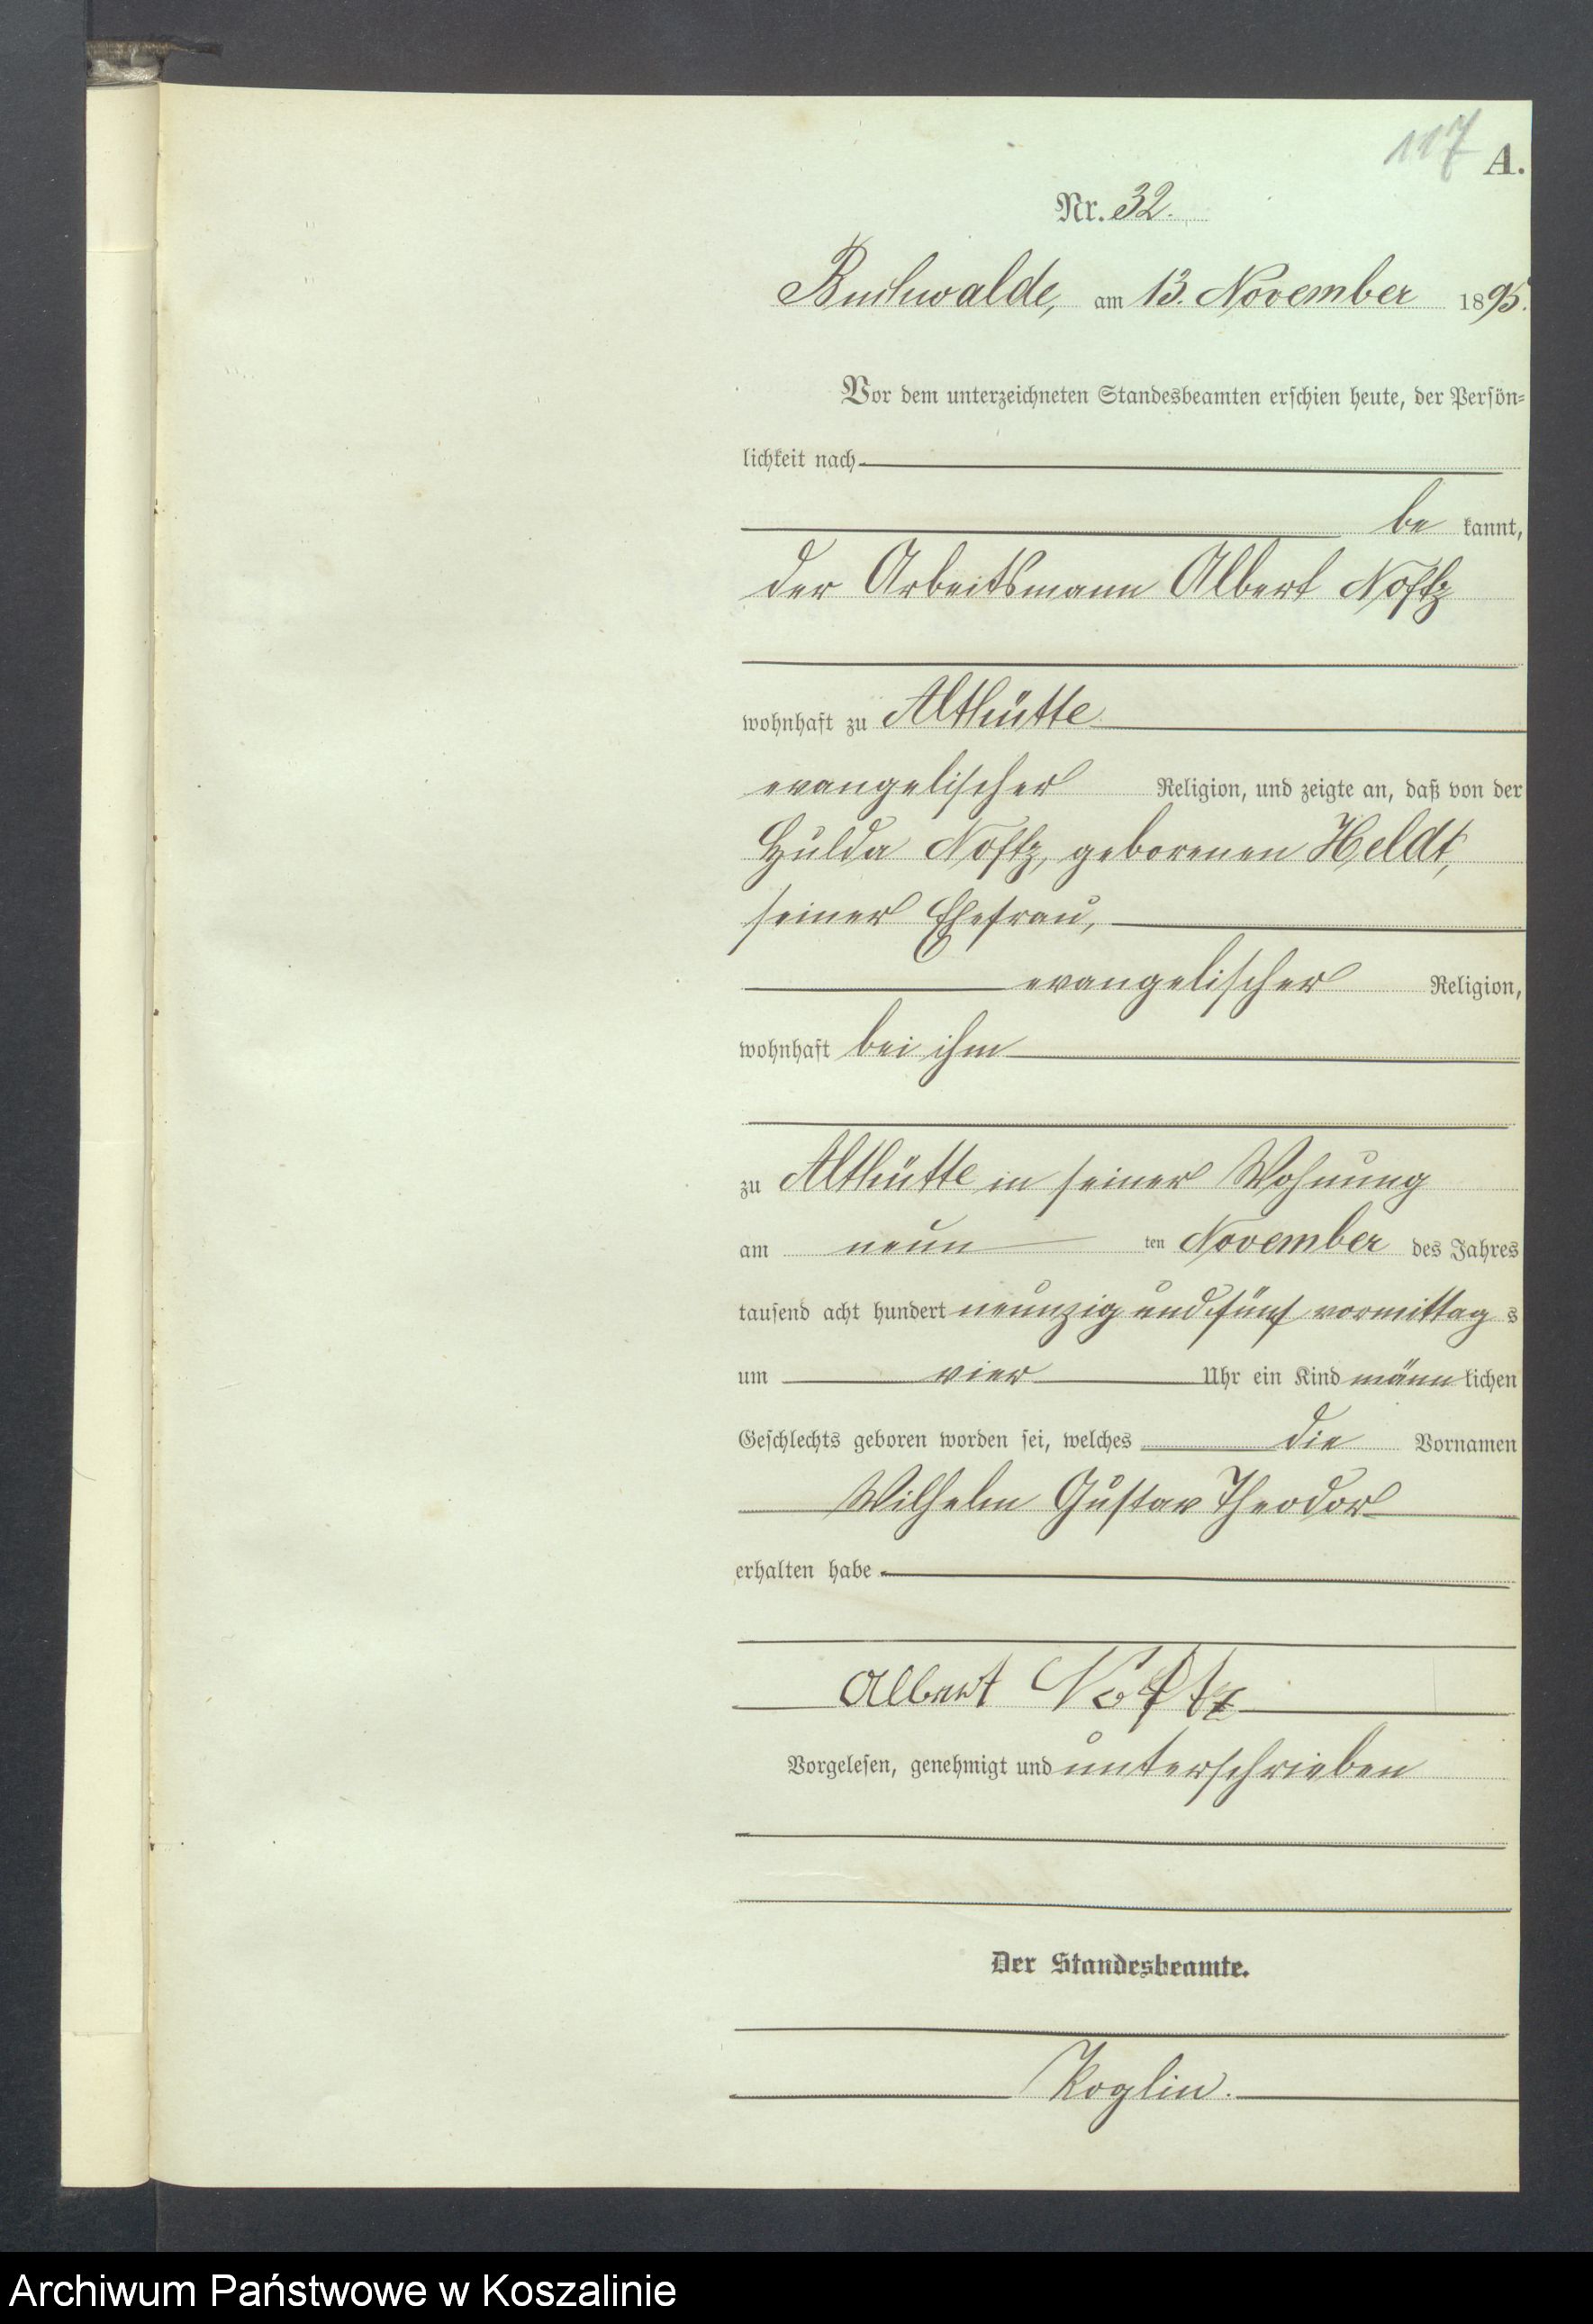 117 A.
Nr. 32.
Buchwalde, am 13. November 1895.
Vor dem unterzeichneten Standesbeamten erschien heute, der Persön-
lichkeit nach
be kannt,
der Arbeitsmann Albert Noftz
wohnhaft zu Althütte
evangelischer Religion, und zeigte an, daß von der
Hulda Noftz, geborenen Heldt,
seiner Ehefrau,
evangelischer Religion,
wohnhaft bei ihm
zu Althütte in seiner Wohnung
am neun ten November des Jahres
tausend acht hundert neunzig und fünf vormittag s
um vier Uhr ein Kind männ lichen
Geschlechts geboren worden sei, welches die Vornamen
Wilhelm Gustav Theodor
erhalten habe
Albert Noftz
Vorgelesen, genehmigt und unterschrieben
Der Standesbeamte.
Koglin.
Archiwum Państwowe w Koszalinie